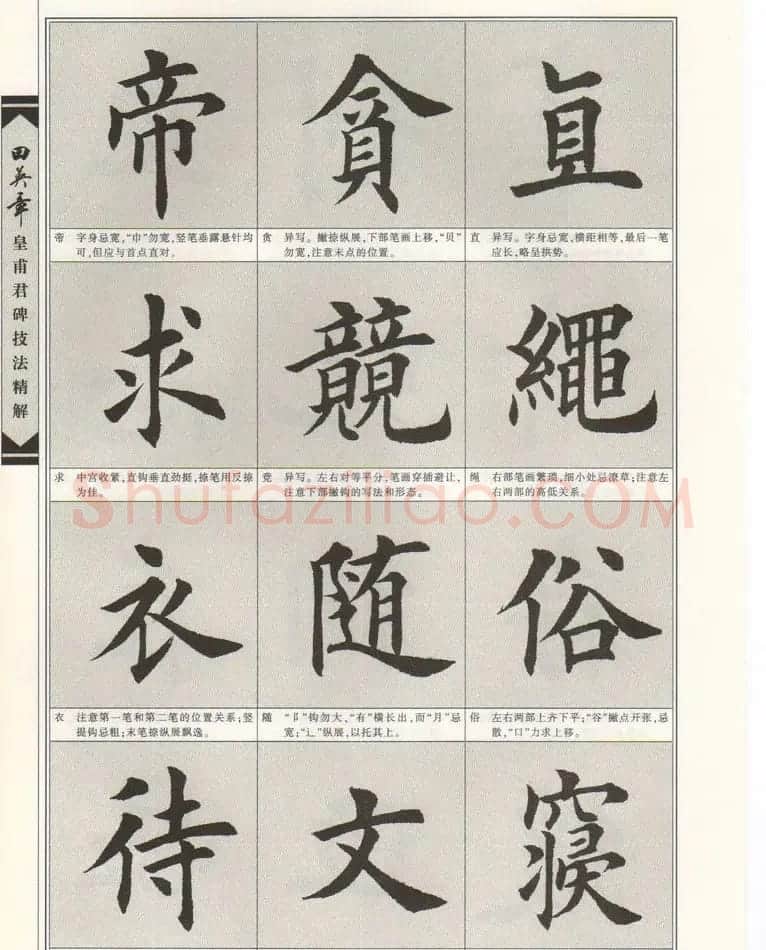 田英章
皇甫君碑技法精解
帝 貪 直
帝 字身忌宽,“巾”勿宽,竖笔垂露悬针均
可,但应与首点直对。
贪 异写。撇捺纵展,下部笔画上移,“贝”
勿宽,注意末点的位置。
直 异写。字身忌宽,横距相等,最后一笔
应长,略呈拱势。
求 競 繩
求 中宫收紧,直钩垂直劲挺,捺笔用反捺
为佳。
竞 异写。左右对等平分,笔画穿插避让,
注意下部撇钩的写法和形态。
绳 右部笔画繁琐,细小处忌潦草;注意左
右两部的高低关系。
Shufaziliao.COM
衣 随 俗
衣 注意第一笔和第二笔的位置关系;竖
提钩忌粗;末笔捺纵展飘逸。
随 “阝”钩勿大,“有”横长出,而“月”忌
宽;“辶”纵展,以托其上。
俗 左右两部上齐下平;“谷”撇点开张,忌
散,“口”力求上移。
待 文 寝